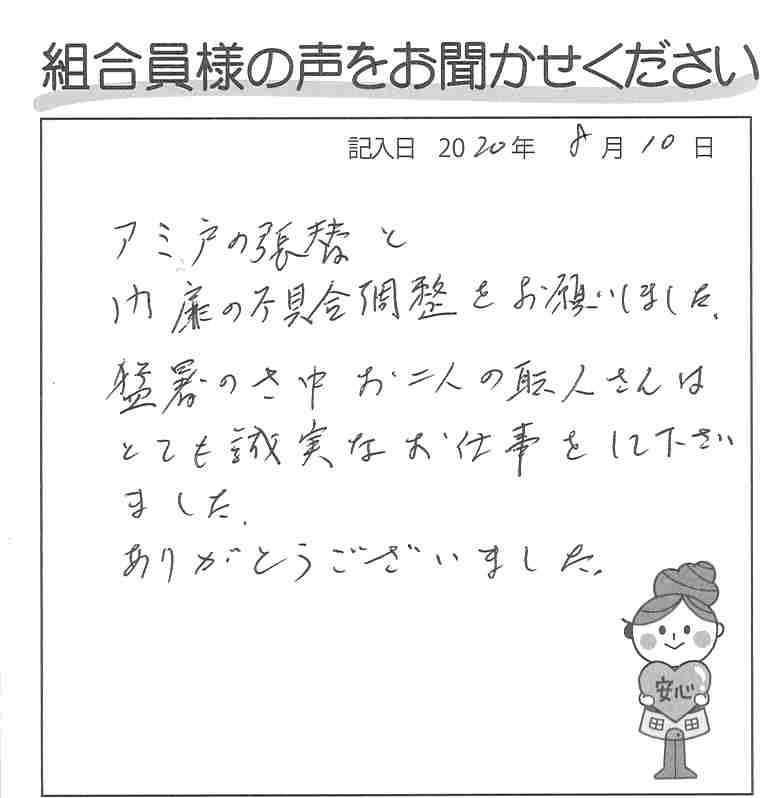 組合員様の声をお聞かせください
記入日 2020年 8月10日
アミ戸の張替と
内扉の不具合調整をお願いしました。
猛暑のさ中お二人の職人さんは
とても誠実なお仕事をして下さい
ました。
ありがとうございました。
安心